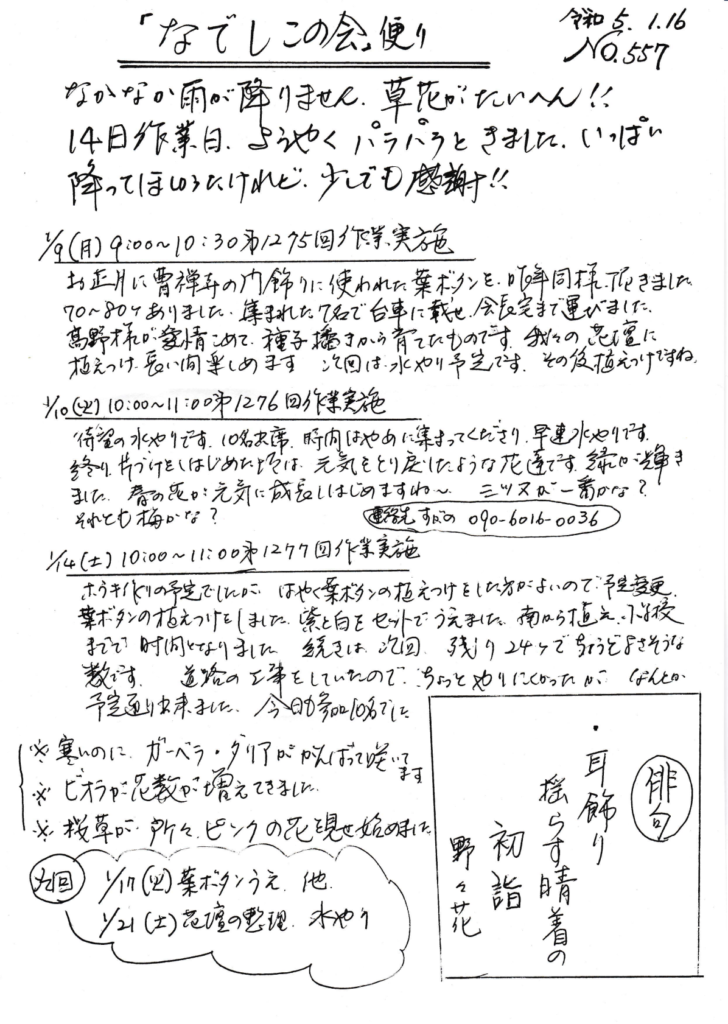 「なでしこの会」便り
令和5.1.16
NO.557
なかなか雨が降りません、草花がたいへん!!
14日作業日、ようやくパラパラときました、いっぱい
降ってほしかったけれど、少しでも感謝!!
1/9(月)9:00~10:30第1275回作業実施
お正月に曹禅寺の門飾りに使われた葉ボタンを、昨年同様、頂きました
70~80ケありました、集まれた7名で台車に載せ、会長宅まで運びました、
高野様が愛情こめて、種子播きから育てたものです、我々の花壇に
植えつけ、長い間楽しめます 次回は、水やり予定です、その後植えつけですね、
1/10(火)10:00~11:00第1276回作業実施
待望の水やりです、10名出席、時間はやめに集まってくださり、早速水やりです、
終り、片づけをしはじめた頃は、元気をとり戻したような花達です、緑が輝き
ました、春の花が元気に成長しはじめますわ~ ミツマタが一番かな?
それとも梅かな?
連絡先 すがの 090-6016-0036
1/14(土)10:00~11:00第1277回作業実施
ホウキ作りの予定でしたが、はやく葉ボタンの植えつけをした方がよいので、予定変更、
葉ボタンの植えつけをしました、紫と白をセットでうえました、南から植え、小学校
までで時間となりました 続きは、次回、残り24ケでちょうどよさそうな
数です、 道路の工事をしていたので、ちょっとやりにくかったが なんとか
予定通り出来ました、今日も参加10名でした
※寒いのに、ガーベラ・ダリアががんばって咲いて
ます
※ビオラが花数が増えてきました、
※桜草が、所々、ピンクの花を見せ始めました、
次回
1/17(火)葉ボタンうえ、他、
1/21(土)花壇の整理、水やり
俳句
・耳飾り
揺らす晴着の
初詣
野々花